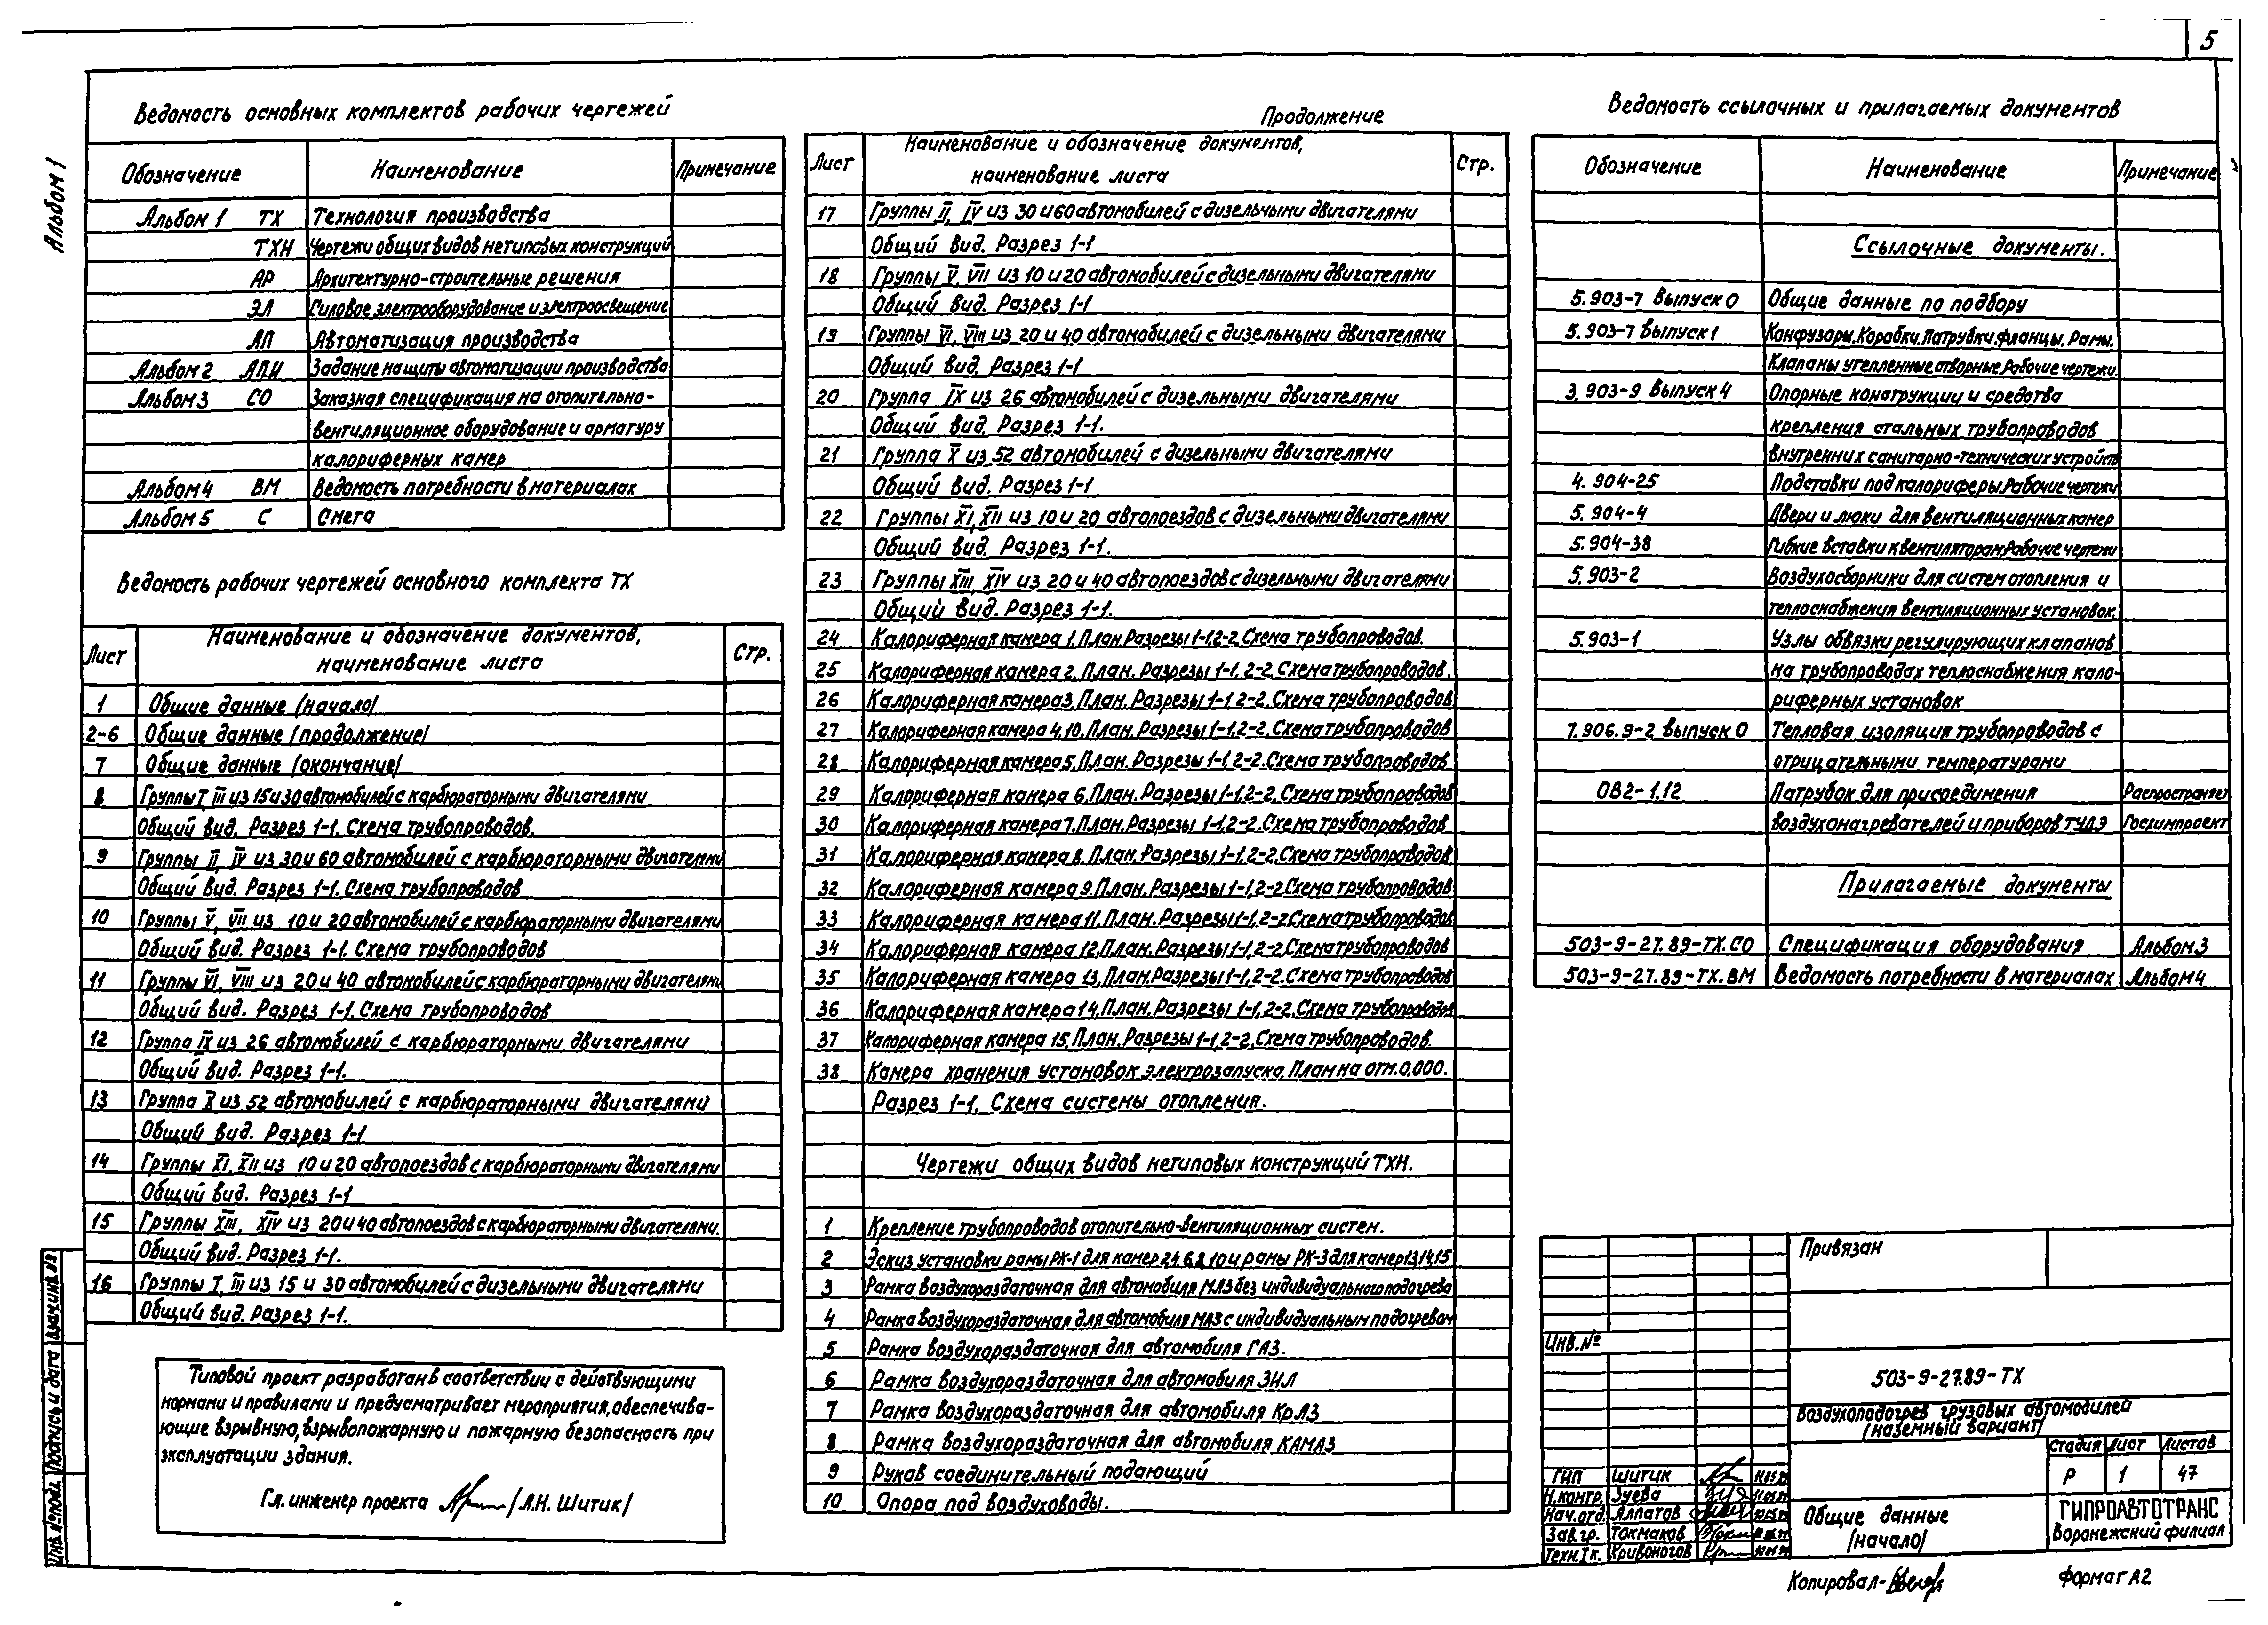 5
Альбом 1
Ведомость основных комплектов рабочих чертежей
Обозначение Наименование Примечание
Альбом 1 ТХ Технология производства
ТХН Чертежи общих видов нетиповых конструкций
АР Архитектурно-строительные решения
ЭЛ Силовое электрооборудование и электроосвещение
АП Автоматизация производства
Альбом 2 АПН Задание на щиты автоматизации производства
Альбом 3 СО Заказная спецификация на отопительно-
вентиляционное оборудование и арматуру
калориферных камер
Альбом 4 ВМ Ведомость потребности в материалах
Альбом 5 С Смета
Ведомость рабочих чертежей основного комплекта ТХ
Лист Наименование и обозначение документов, Стр.
наименование листа
1 Общие данные /начало/
2-6 Общие данные /продолжение/
7 Общие данные /окончание/
8 Группы I, III из 15 и 30 автомобилей с карбюраторными двигателями
Общий вид. Разрез 1-1. Схема трубопроводов.
9 Группы II, IV из 30 и 60 автомобилей с карбюраторными двигателями
Общий вид. Разрез 1-1. Схема трубопроводов
10 Группы V, VII из 10 и 20 автомобилей с карбюраторными двигателями
Общий вид. Разрез 1-1. Схема трубопроводов
11 Группы VI, VIII из 20 и 40 автомобилей с карбюраторными двигателями
Общий вид. Разрез 1-1. Схема трубопроводов
12 Группа IX из 26 автомобилей с карбюраторными двигателями
Общий вид. Разрез 1-1.
13 Группа X из 52 автомобилей с карбюраторными двигателями
Общий вид. Разрез 1-1
14 Группы XI, XII из 10 и 20 автопоездов с карбюраторными двигателями
Общий вид. Разрез 1-1
15 Группы XIII, XIV из 20 и 40 автопоездов с карбюраторными двигателями.
Общий вид. Разрез 1-1.
16 Группы I, III из 15 и 30 автомобилей с дизельными двигателями
Общий вид. Разрез 1-1.
Типовой проект разработан в соответствии с действующими
нормами и правилами и предусматривает мероприятия, обеспечива-
ющие взрывную, взрывопожарную и пожарную безопасность при
эксплуатации здания.
Гл. инженер проекта /Л.Н. Шитик/
Продолжение
Лист Наименование и обозначение документов, Стр.
наименование листа
17 Группы II, IV из 30 и 60 автомобилей с дизельными двигателями
Общий вид. Разрез 1-1
18 Группы V, VII из 10 и 20 автомобилей с дизельными двигателями
Общий вид. Разрез 1-1
19 Группы VI, VIII из 20 и 40 автомобилей с дизельными двигателями
Общий вид. Разрез 1-1
20 Группа IX из 26 автомобилей с дизельными двигателями
Общий вид. Разрез 1-1.
21 Группа X из 52 автомобилей с дизельными двигателями
Общий вид. Разрез 1-1
22 Группы XI, XII из 10 и 20 автопоездов с дизельными двигателями
Общий вид. Разрез 1-1.
23 Группы XIII, XIV из 20 и 40 автопоездов с дизельными двигателями
Общий вид. Разрез 1-1.
24 Калориферная камера 1. План. Разрезы 1-1, 2-2. Схема трубопроводов.
25 Калориферная камера 2. План. Разрезы 1-1, 2-2. Схема трубопроводов.
26 Калориферная камера 3. План. Разрезы 1-1, 2-2. Схема трубопроводов
27 Калориферная камера 4, 10. План. Разрезы 1-1, 2-2. Схема трубопроводов
28 Калориферная камера 5. План. Разрезы 1-1, 2-2. Схема трубопроводов
29 Калориферная камера 6. План. Разрезы 1-1, 2-2. Схема трубопроводов
30 Калориферная камера 7. План. Разрезы 1-1, 2-2. Схема трубопроводов
31 Калориферная камера 8. План. Разрезы 1-1, 2-2. Схема трубопроводов
32 Калориферная камера 9. План. Разрезы 1-1, 2-2 Схема трубопроводов
33 Калориферная камера 11. План. Разрезы 1-1, 2-2. Схема трубопроводов
34 Калориферная камера 12. План. Разрезы 1-1, 2-2. Схема трубопроводов
35 Калориферная камера 13. План. Разрезы 1-1, 2-2. Схема трубопроводов
36 Калориферная камера 14. План. Разрезы 1-1, 2-2. Схема трубопроводов
37 Калориферная камера 15. План. Разрезы 1-1, 2-2. Схема трубопроводов.
38 Камера хранения установок электрозапуска. План на отм. 0,000.
Разрез 1-1. Схема системы отопления.
Чертежи общих видов нетиповых конструкций ТХН.
1 Крепление трубопроводов отопительно-вентиляционных систем.
2 Эскиз установки рамы РК-1 для камер 2,4,6,8,10 и рамы РК-3 для камер 13,14,15
3 Рамка воздухораздаточная для автомобиля МАЗ без индивидуального подогрева
4 Рамка воздухораздаточная для автомобиля МАЗ с индивидуальным подогревом
5 Рамка воздухораздаточная для автомобиля ГАЗ.
6 Рамка воздухораздаточная для автомобиля ЗИЛ
7 Рамка воздухораздаточная для автомобиля КрАЗ
8 Рамка воздухораздаточная для автомобиля КАМАЗ
9 Рукав соединительный подающий
10 Опора под воздуховоды.
Ведомость ссылочных и прилагаемых документов
Обозначение Наименование Примечание
Ссылочные документы.
5.903-7 Выпуск 0 Общие данные по подбору
5.903-7 Выпуск 1 Конфузоры. Коробки. Патрубки. Фланцы. Рамы.
Клапаны утепленные створные. Рабочие чертежи.
3.903-9 Выпуск 4 Опорные конструкции и средства
крепления стальных трубопроводов
внутренних санитарно-технических устройств
4.904-25 Подставки под калориферы. Рабочие чертежи
5.904-4 Двери и люки для вентиляционных камер
5.904-38 Гибкие вставки к вентиляторам. Рабочие чертежи
5.903-2 Воздухосборники для систем отопления и
теплоснабжения вентиляционных установок.
5.903-1 Узлы обвязки регулирующих клапанов
на трубопроводах теплоснабжения кало-
риферных установок
7.906.9-2 Выпуск 0 Тепловая изоляция трубопроводов с
отрицательными температурами
ОВ2-1.12 Патрубок для присоединения Распространяет
воздухонагревателей и приборов ТУДЭ Госхимпроект
Прилагаемые документы
503-9-27.89-ТХ.СО Спецификация оборудования Альбом 3
503-9-27.89-ТХ.ВМ Ведомость потребности в материалах Альбом 4
Привязан
Инв. №
503-9-27.89-ТХ
Воздухоподогрев грузовых автомобилей
/наземный вариант/
Стадия Лист Листов
Р 1 47
ГИП Шитик
Н.контр. Зуева
Нач.отд. Алпатов
Зав.гр. Токмаков
Техн. I к. Кривоногов
Общие данные
/начало/
ГИПРОАВТОТРАНС
Воронежский филиал
Копировал-
Формат А2
Взам.инв.№
Подпись и дата
Инв.№ подл.